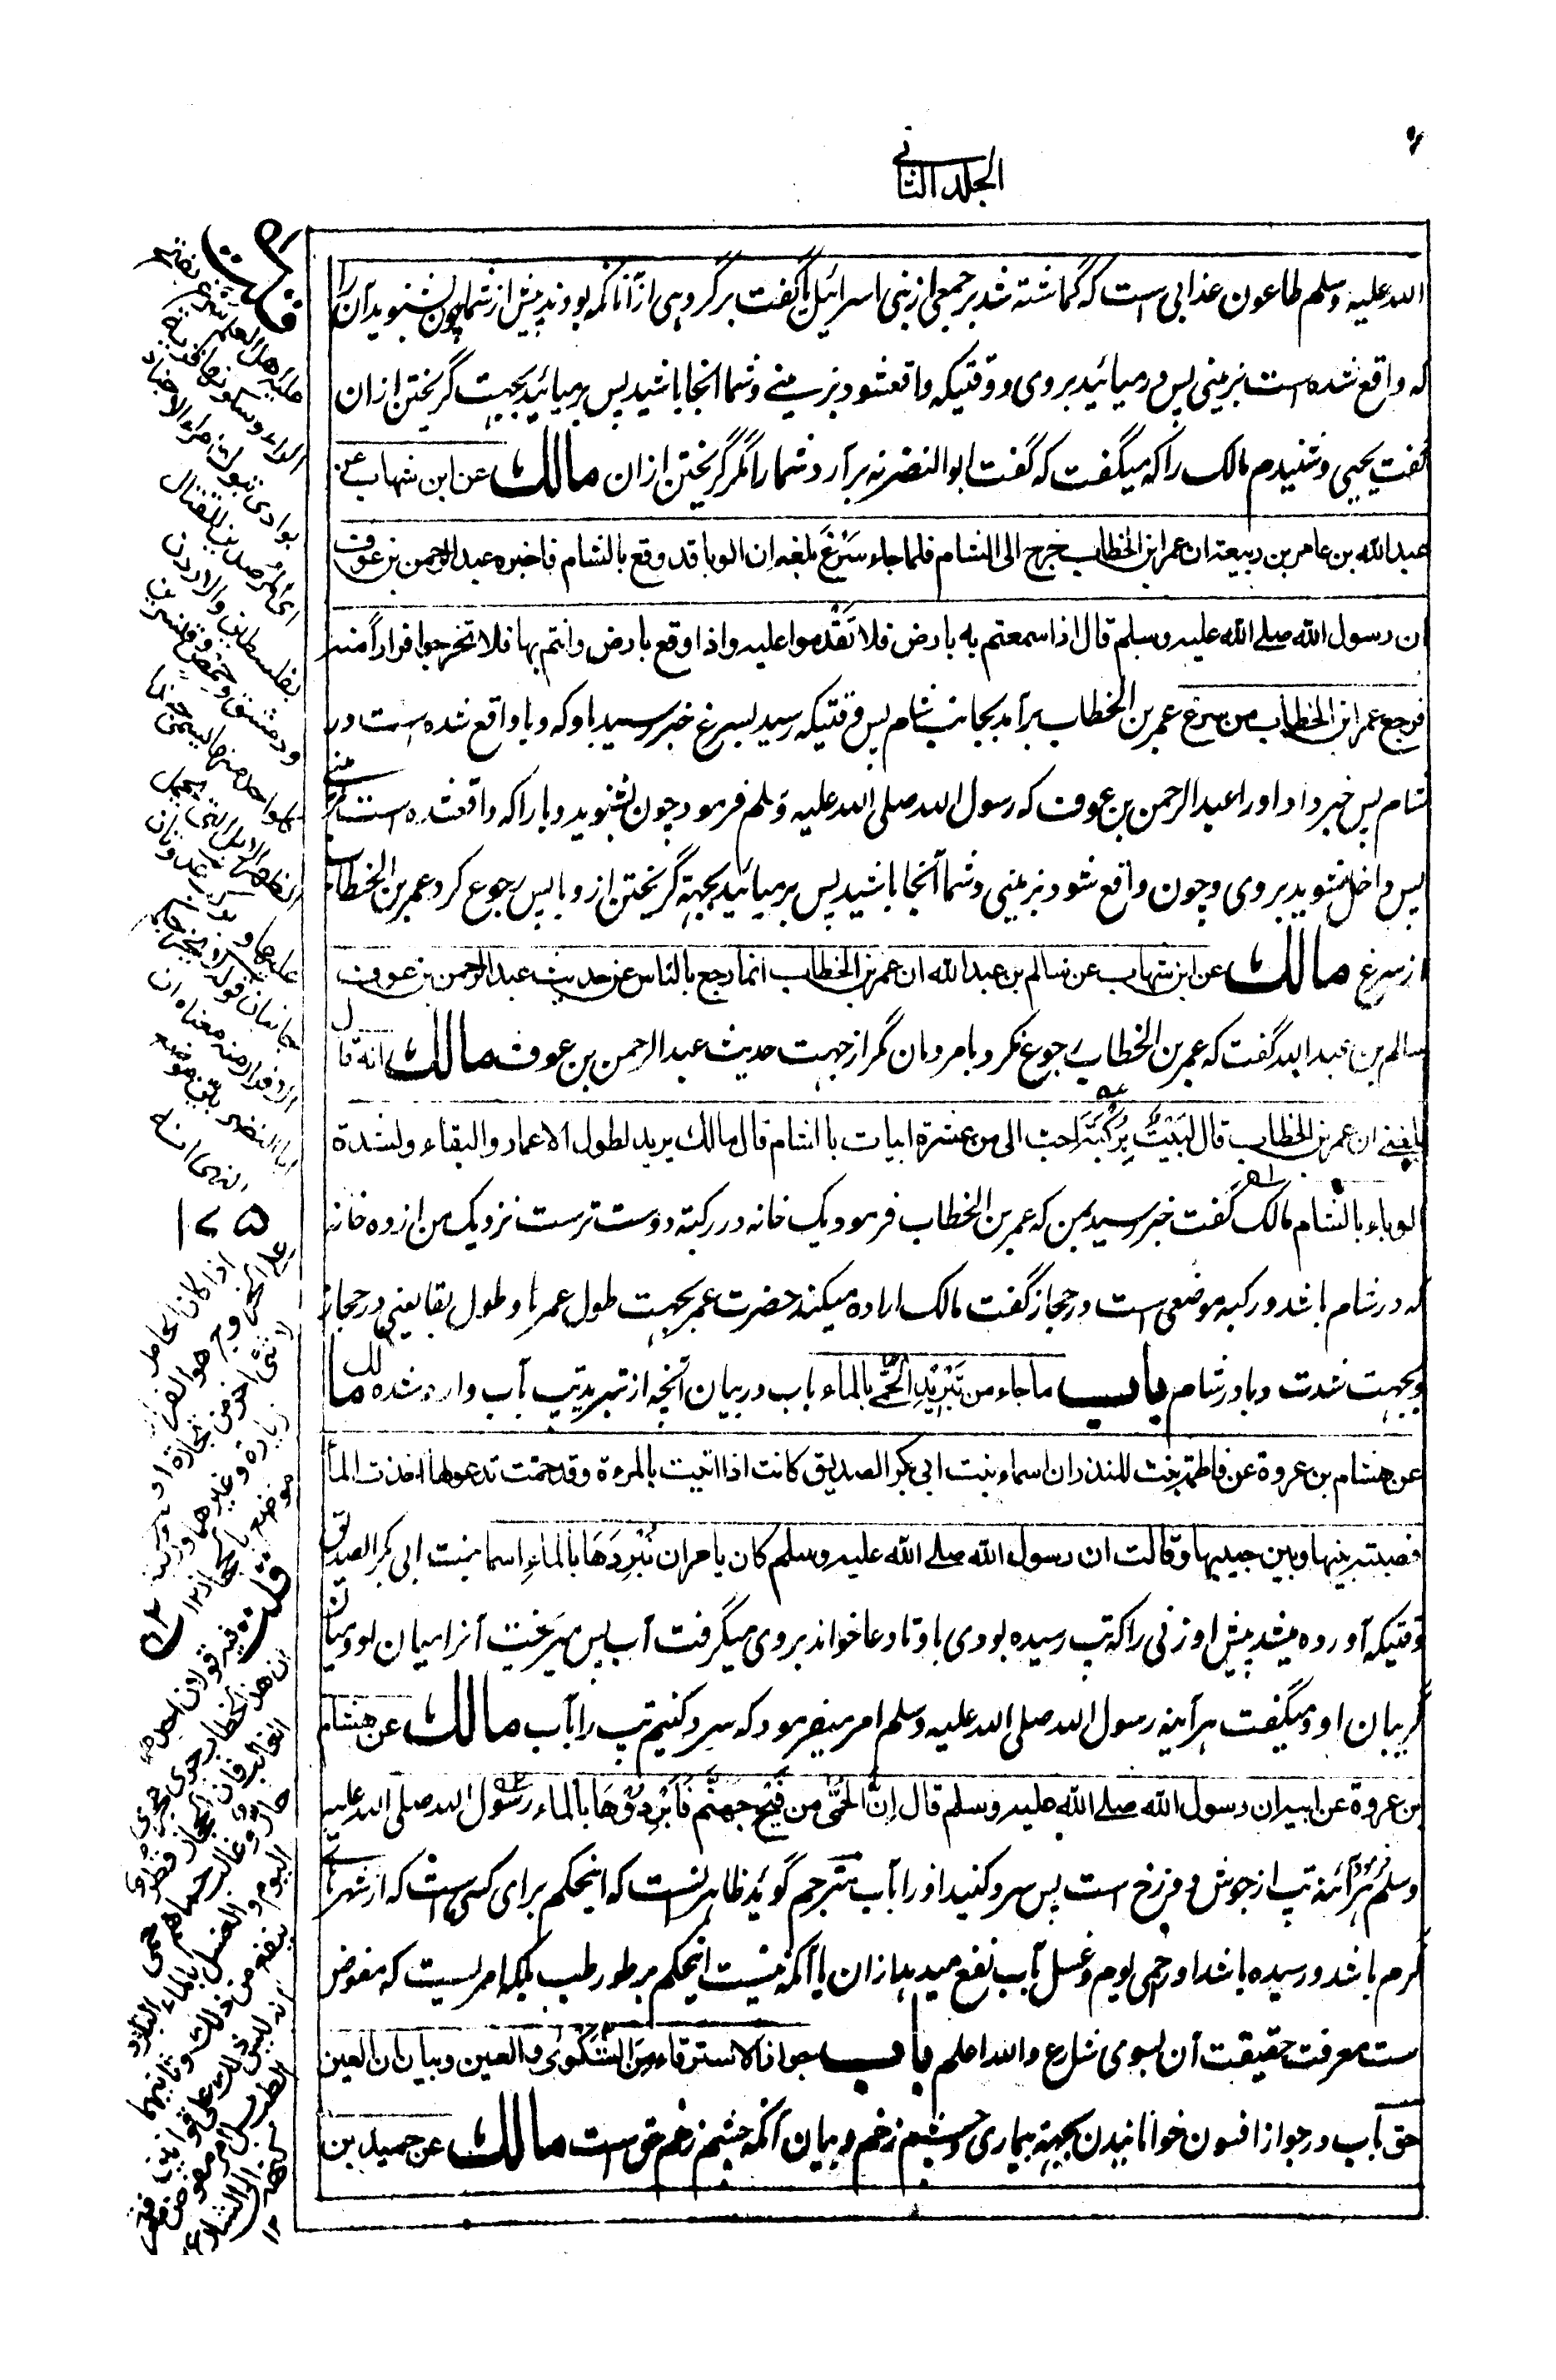 الجلد الثانی
الله علیه وسلم طاعون عذابی است که گماشته شد بر جمعی از بنی اسرائیل یا گفت بر گروهی از آنانکه بودند پیش از شما چون بشنوید آن را
که واقع شده است بزمینی پس در میائید بروی و وقتیکه واقع شود بزمینے و شما آنجا باشید پس برمیائید بجهت گریختن ازان
گفت یحیی و شنیدم مالک را که میگفت که گفت ابو النضر نه برآرد شما را مگر گریختن ازان مالك عن ابن شهاب عن
عبد الله بن عامر بن ربیعة ان عمر ابن الخطاب خرج الی الشام فلما جاء سَرْغَ بلغه ان الوبا قد وقع بالشام فاخبره عبد الرحمن بن عوف
ان رسول الله صلے الله علیه وسلم قال اذا سمعتم به بارض فلا تَقْدَموا علیه واذا وقع بارض وانتم بها فلا تخرجوا فرارًا منه
فرجع عمر ابن الخطاب من سرغ عمر بن الخطاب برآمد بجانب شام پس وقتیکه رسید بسرغ خبر رسید باو که وبا واقع شده است در
شام پس خبر داد او را عبد الرحمن بن عوف که رسول الله صلی الله علیه وسلم فرمود چون بشنوید وبا را که واقع شده است بزمینے
پس داخل مشوید بروی و چون واقع شود بزمینی و شما آنجا باشید پس برمیائید بجهة گریختن از وبا پس رجوع کرد عمر بن الخطاب
از سرغ مالك عن ابن شهاب عن سالم بن عبد الله ان عمر بن الخطاب انما رجع بالناس عن حدیث عبد الرحمن بن عوف
سالم بن عبد الله گفت که عمر بن الخطاب رجوع نکرد با مردمان مگر از جهت حدیث عبد الرحمن بن عوف مالك انه قال
بلغنی ان عمر بن الخطاب قال لبَیْتٌ بِرُکْبَةَ احب الی من عشرة ابیات بالشام قال مالك یرید لطول الاعمار والبقاء ولشدة
الوباء بالشام مالک گفت خبر رسید بمن که عمر بن الخطاب فرمود یک خانه در رکبة دوست ترست نزدیک من از ده خانه
که در شام باشد و رکبه موضعی است در حجاز گفت مالک اراده میکند حضرت عمر بجهت طول عمرها و طول بقا یعنی در حجاز
و بجهت شدت وبا در شام باب ما جاء من تَبْرِیْدِ الْحُمّٰے بالماء باب در بیان آنچه از تبرید تپ بآب وارد شده مالك
عن هشام بن عروة عن فاطمة بنت المنذر ان اسماء بنت ابی بکر الصدیق کانت اذا اتیت بالمرءة وقد حمّت تدعو لها اخذت الماء
فصبته بینها وبین جیبها وقالت ان رسول الله صلے الله علیه وسلم کان یامر ان نُبْرِدَهَا بالماءِ اسما بنت ابی بکر الصدیق
وقتیکه آورده میشد پیش او زنی را که تپ رسیده بودی باو تا دعا خواند بروی میگرفت آب پس میریخت آنرا میان او و میان
گریبان او و میگفت هرآینه رسول الله صلی الله علیه وسلم امر میفرمود که سرد کنیم تپ را بآب مالك عن هشام
بن عروة عن ابیه ان رسول الله صلے الله علیه وسلم قال اِنَّ الْحُمّٰی من فَیْحِ جَهَنَّم فَابْرِدُوْهَا بالماء رسول الله صلی الله علیه
وسلم فرمود هرآئنه تپ از جوش دوزخ است پس سرد کنید او را بآب مترجم گوید ظاهر آنست که اینحکم برای کسی است که از شهرهای
گرم باشد و رسیده باشد او را حمی یوم و غسل بآب نفع میدهد ازان یا آنکه نیست اینحکم بر طور طب بلکه امریست که مفوض
ست معرفت حقیقت آن بسوی شارع والله اعلم باب جواز الاسترقاء من الشَّکْوٰی والعین وبیان ان العین
حق باب در جواز افسون خوانانیدن بجهة بیماری و چشم زخم و بیان آنکه چشم زخم حق ست مالك عن حمید بن
قلت
۱۲۵
علی الخروج هو الفرار
موضع بالحجاز ۱۲
قلت
فیه قولان احدهما
ان هذا الخطاب جری مجری
الغالب فان الحجاز قطر
حارّ وغالب حمیاهم حمی
الیوم والغسل بالماء البارد
ینفع من ذلك وثانیهما
انه لیس ذلك علی قوانین
الطب بل امر مفوض
الی الشارع ۱۲